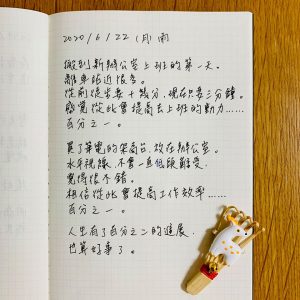 2020/6/22 (月) 雨
搬到新辦公室上班的第一天。
離車站近很多。
從前徒步要十幾分，現在只要三分鐘。
感覺從此會提高去上班的動力……
百分之一。
買了筆電的架高台，放在辦公室。
水平視線，不會一直低頭難受，
覺得很不錯。
相信從此會提高工作效率……
百分之一。
人生有了百分之二的進展，
也算好事了。